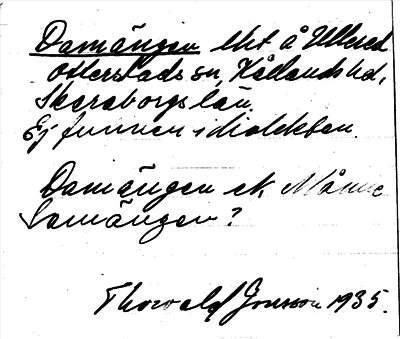 Damängen lht å Ullered
Otterstads sn, Kållands hd,
Skaraborgs län.
Ej funnen i dialekten.
Damängen ek Månne
Samängen?
Thorvald Jonsson 1935.